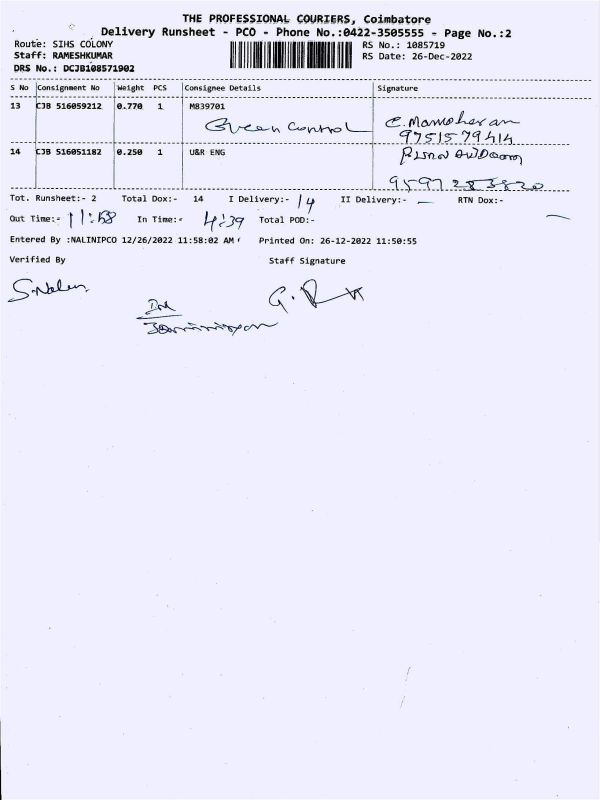 THE PROFESSIONAL COURIERS, Coimbatore
Delivery Runsheet - PCO - Phone No.:0422-3505555 - Page No.:2
Route: SIHS COLONY
Staff: RAMESHKUMAR
DRS No.: DCJB108571902
RS No.: 1085719
RS Date: 26-Dec-2022
S No Consignment No Weight PCS Consignee Details Signature
13 CJB 516059212 0.770 1 M839701
Green Control
C. Manoharan
9751579414
14 CJB 516051182 0.250 1 U&R ENG
9597283820
Tot. Runsheet:- 2 Total Dox:- 14 I Delivery:- 14 II Delivery:- — RTN Dox:- —
Out Time:- 11:58 In Time:- 4:39 Total POD:-
Entered By :NALINIPCO 12/26/2022 11:58:02 AM Printed On: 26-12-2022 11:50:55
Verified By Staff Signature
S.Nalini